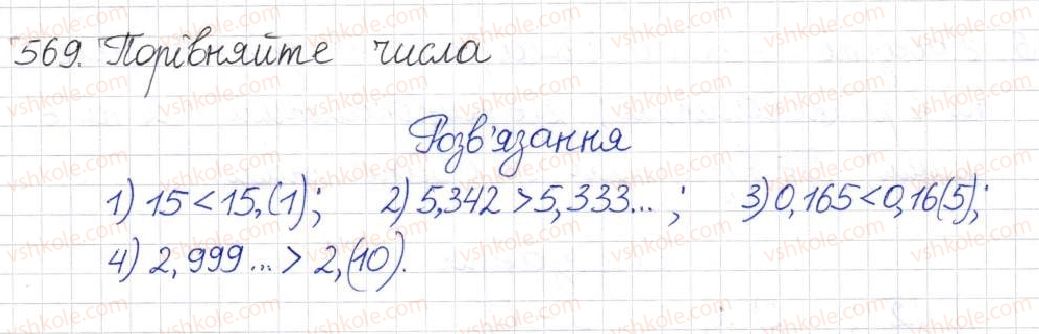 569. Порівняйте числа
Розв'язання
1) 15 < 15,(1); 2) 5,342 > 5,333...; 3) 0,165 < 0,16(5);
4) 2,999... > 2,(10).